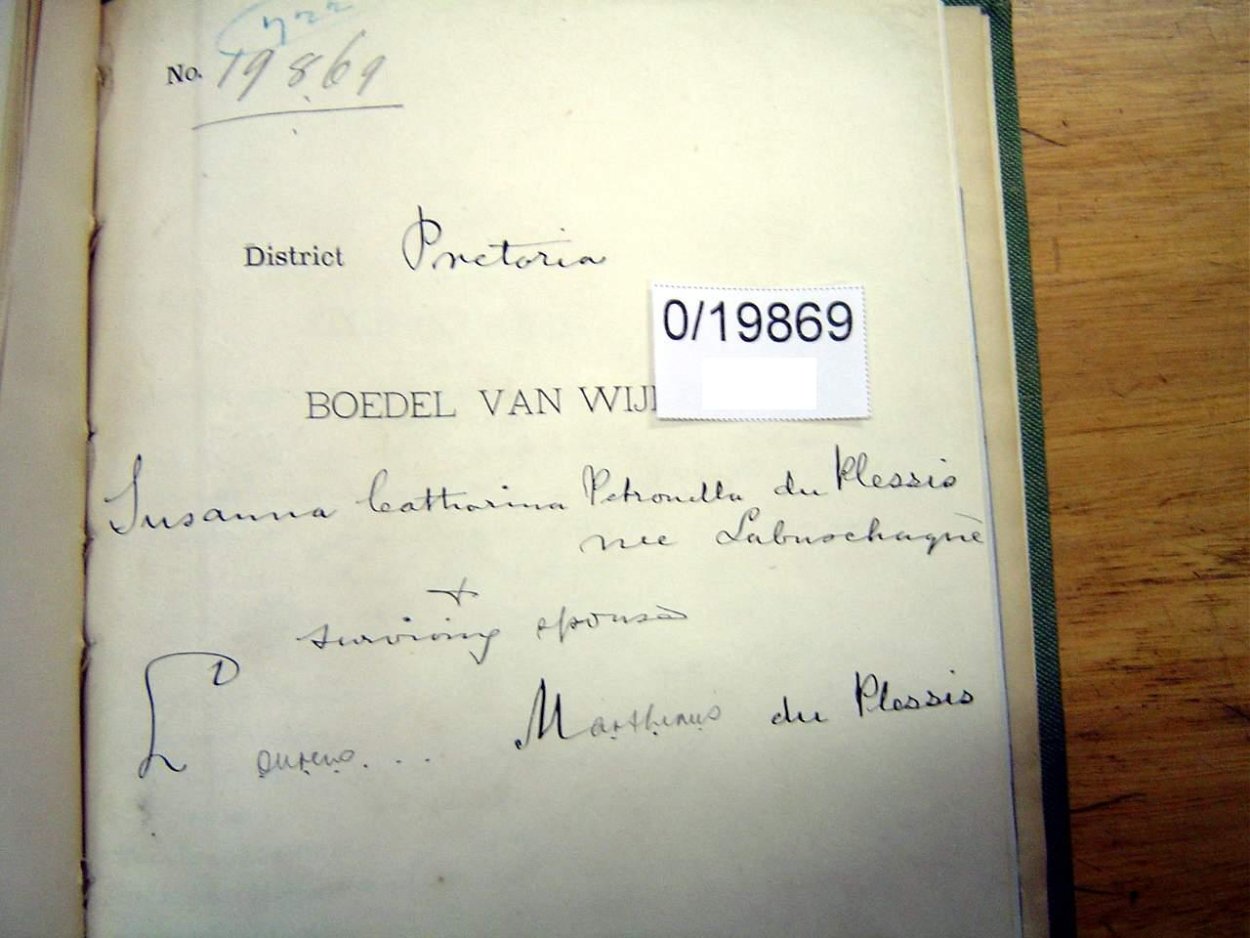 No. 19869
District Pretoria
0/19869
BOEDEL VAN WIJ
Susanna Catharina Petronella du Plessis
nee Labuschagné
+
surviving spouse
Lourens... Marthinus du Plessis